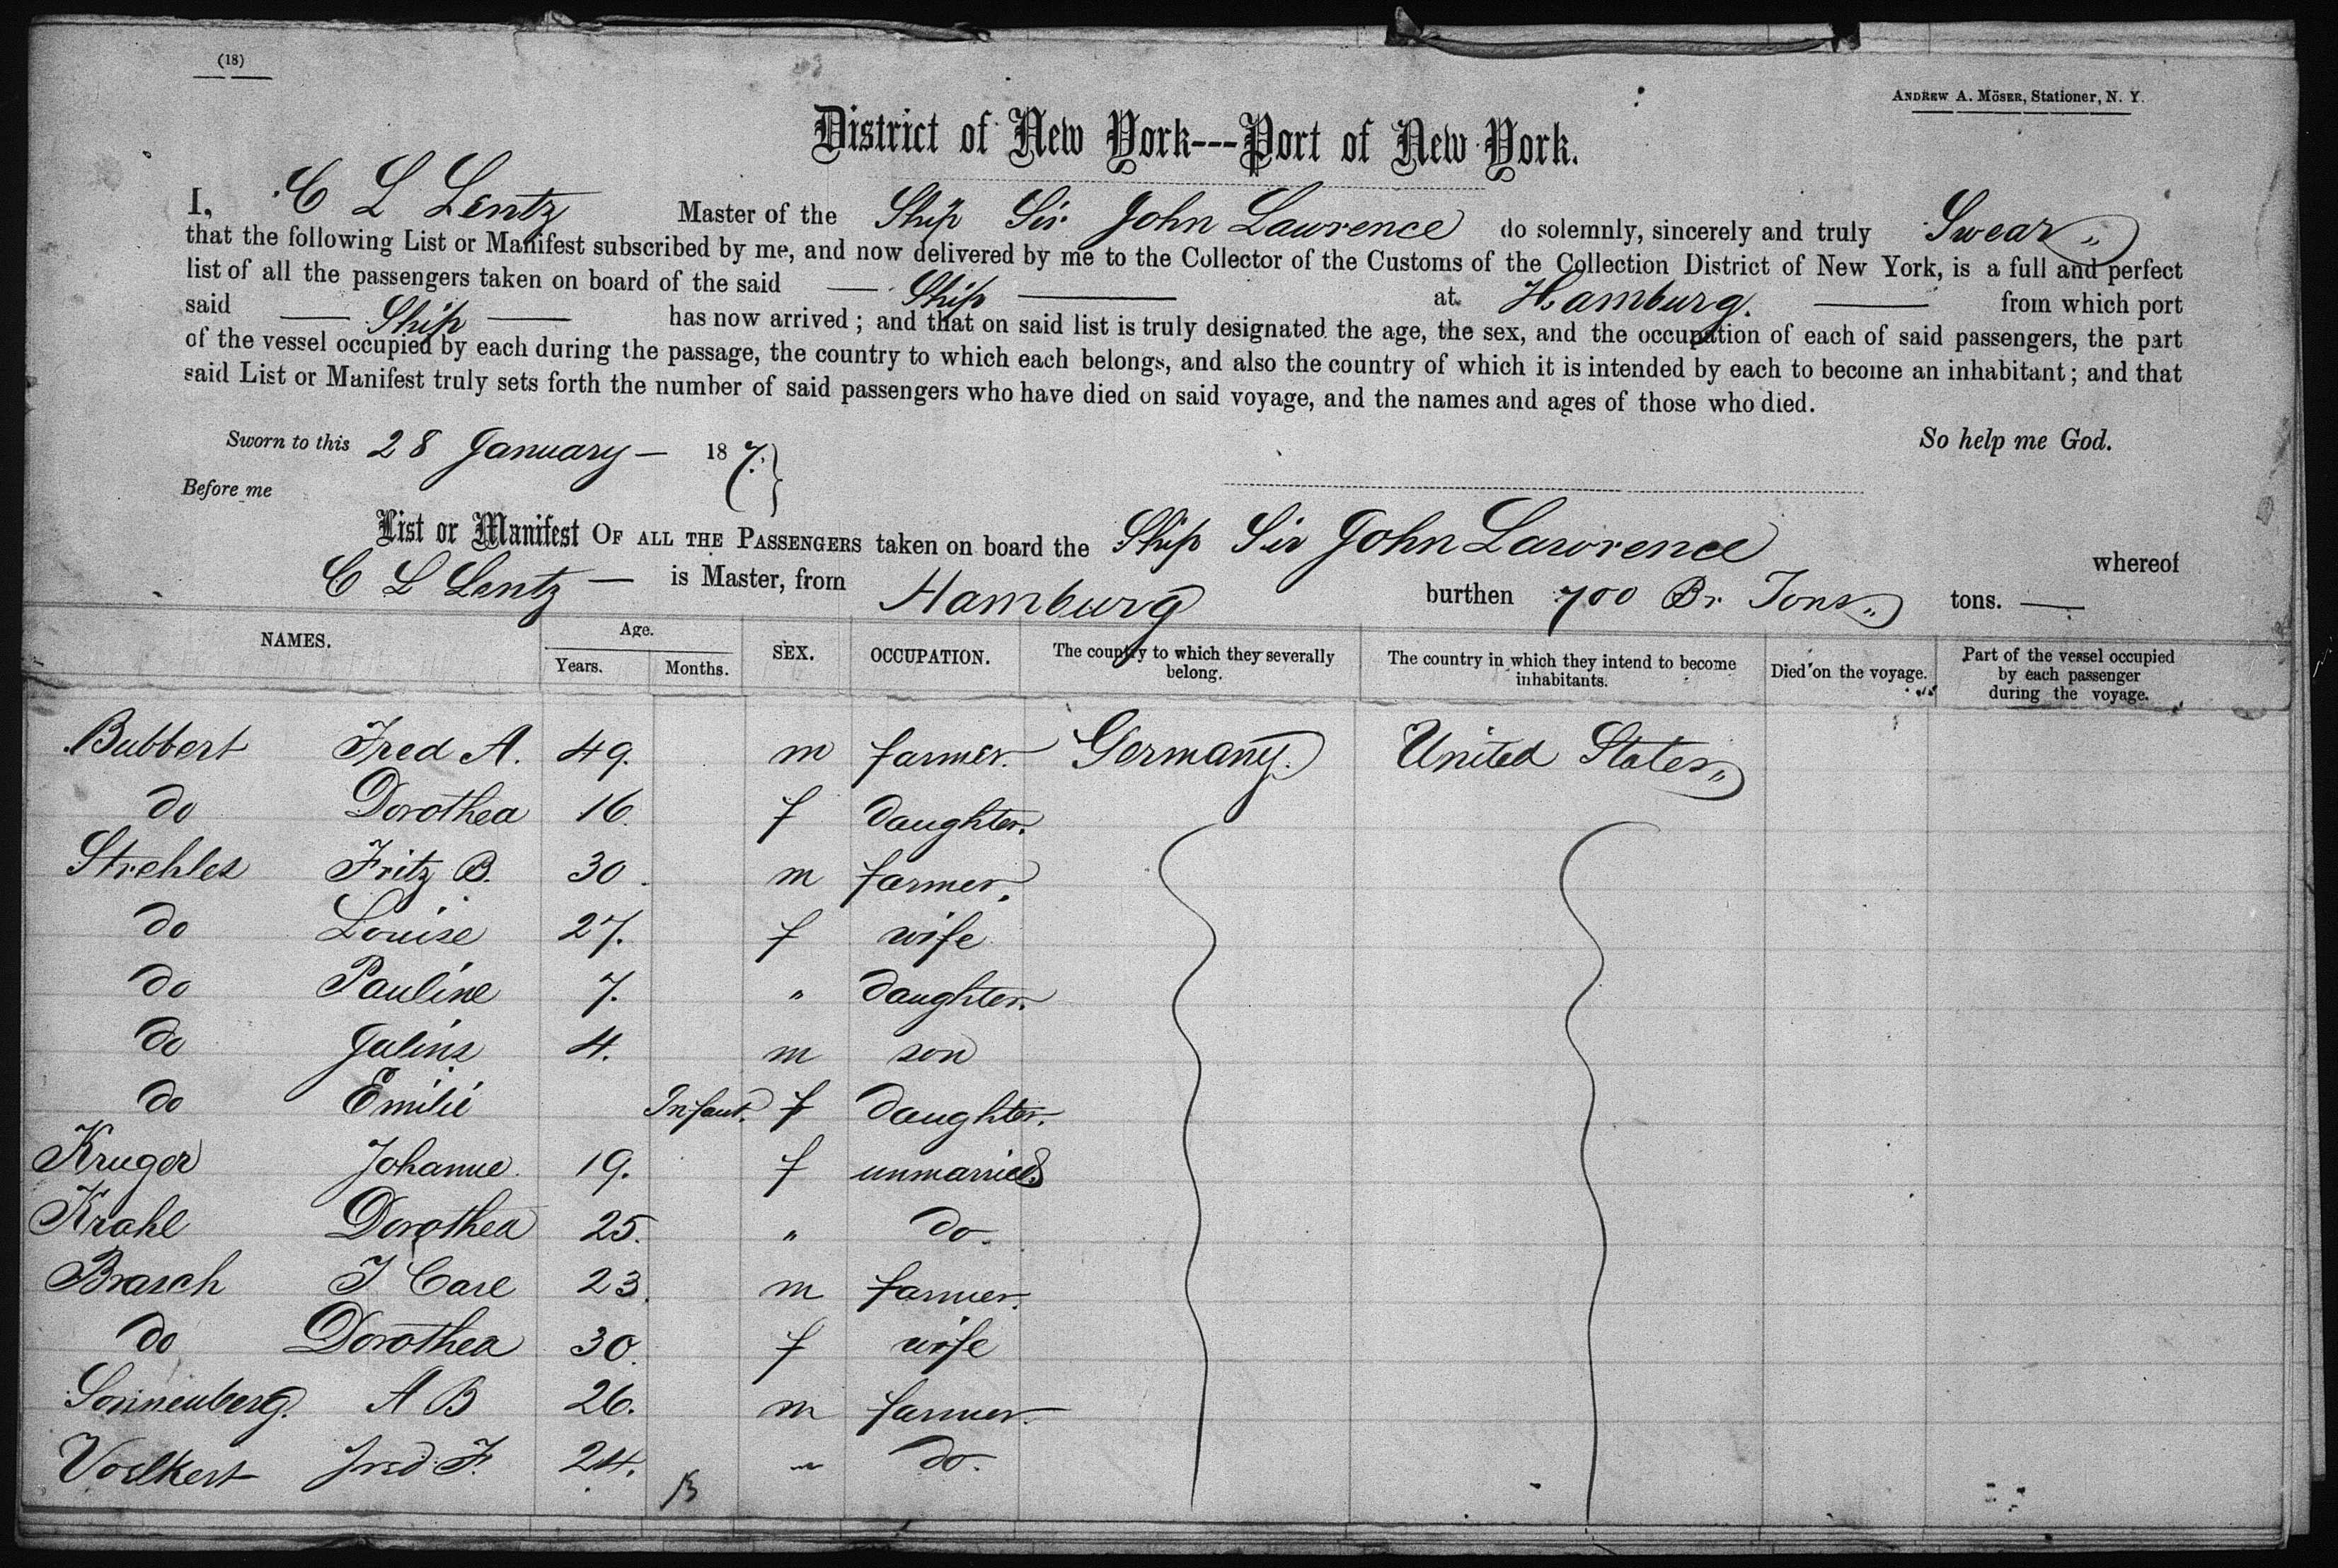 (18)
ANDREW A. MÖSER, Stationer, N. Y.
District of New York---Port of New York.
I, C L Lentz Master of the Ship Sir John Lawrence do solemnly, sincerely and truly Swear
that the following List or Manifest subscribed by me, and now delivered by me to the Collector of the Customs of the Collection District of New York, is a full and perfect
list of all the passengers taken on board of the said Ship at Hamburg. from which port
said Ship has now arrived; and that on said list is truly designated the age, the sex, and the occupation of each of said passengers, the part
of the vessel occupied by each during the passage, the country to which each belongs, and also the country of which it is intended by each to become an inhabitant; and that
said List or Manifest truly sets forth the number of said passengers who have died on said voyage, and the names and ages of those who died.
Sworn to this 28 January – 187. So help me God.
Before me
List or Manifest OF ALL THE PASSENGERS taken on board the Ship Sir John Lawrence whereof
C L Lentz – is Master, from Hamburg burthen 700 Br. Tons tons. —
NAMES. Age. Years. Months. SEX. OCCUPATION. The country to which they severally belong. The country in which they intend to become inhabitants. Died on the voyage. Part of the vessel occupied by each passenger during the voyage.
Bubbert Fred A. 49. m farmer. Germany. United States
do Dorothea 16. f daughter.
Strehles Fritz B. 30. m farmer.
do Louise 27. f wife
do Pauline 7. " daughter.
do Julius 4. m son
do Emilie Infant. f daughter.
Kruger Johanne. 19. f unmarried
Krahl Dorothea 25. " do.
Brasch J Carl 23. m farmer.
do Dorothea 30. f wife
Sonnenberg. A B 26. m farmer.
Voelkert Fred. F. 24. " do.
13